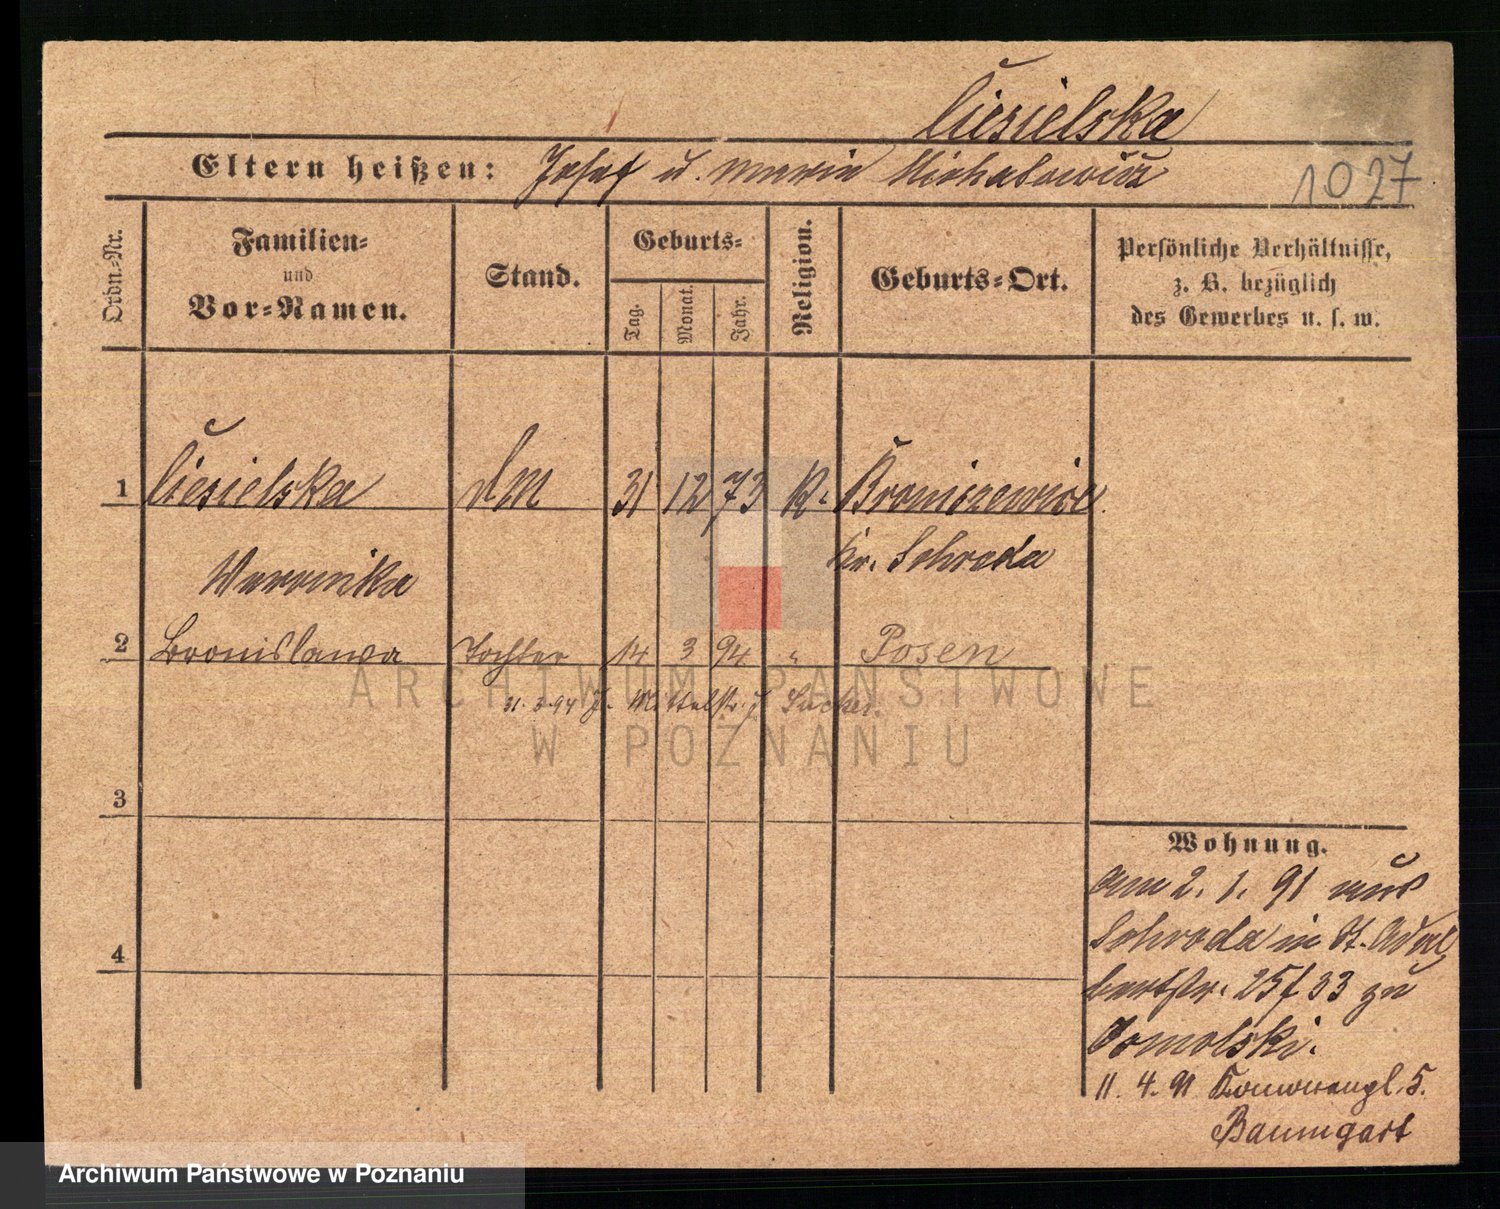 Ciesielska
Eltern heißen: Josef u. Maria Michalowicz
1027
Ordn.-Nr.
Familien-
und
Vor-Namen.
Stand.
Geburts-
Tag.
Monat.
Jahr.
Religion.
Geburts-Ort.
Persönliche Verhältnisse,
z. B. bezüglich
des Gewerbes u. s. w.
1 Ciesielska DM 31 12 73 K. Broniszewice
Veronika Kr. Schroda
2 Bronislawa Tochter 14 3 94 " Posen
31.3.94 Mittelstr. 7
3
4
Wohnung.
Am 2. 1. 91 aus
Schroda in St. Adal
bertstr. 25/33 zu
Tomolski.
11. 4. 91 5.
Baumgart
ARCHIWUM PAŃSTWOWE
W POZNANIU
Archiwum Państwowe w Poznaniu